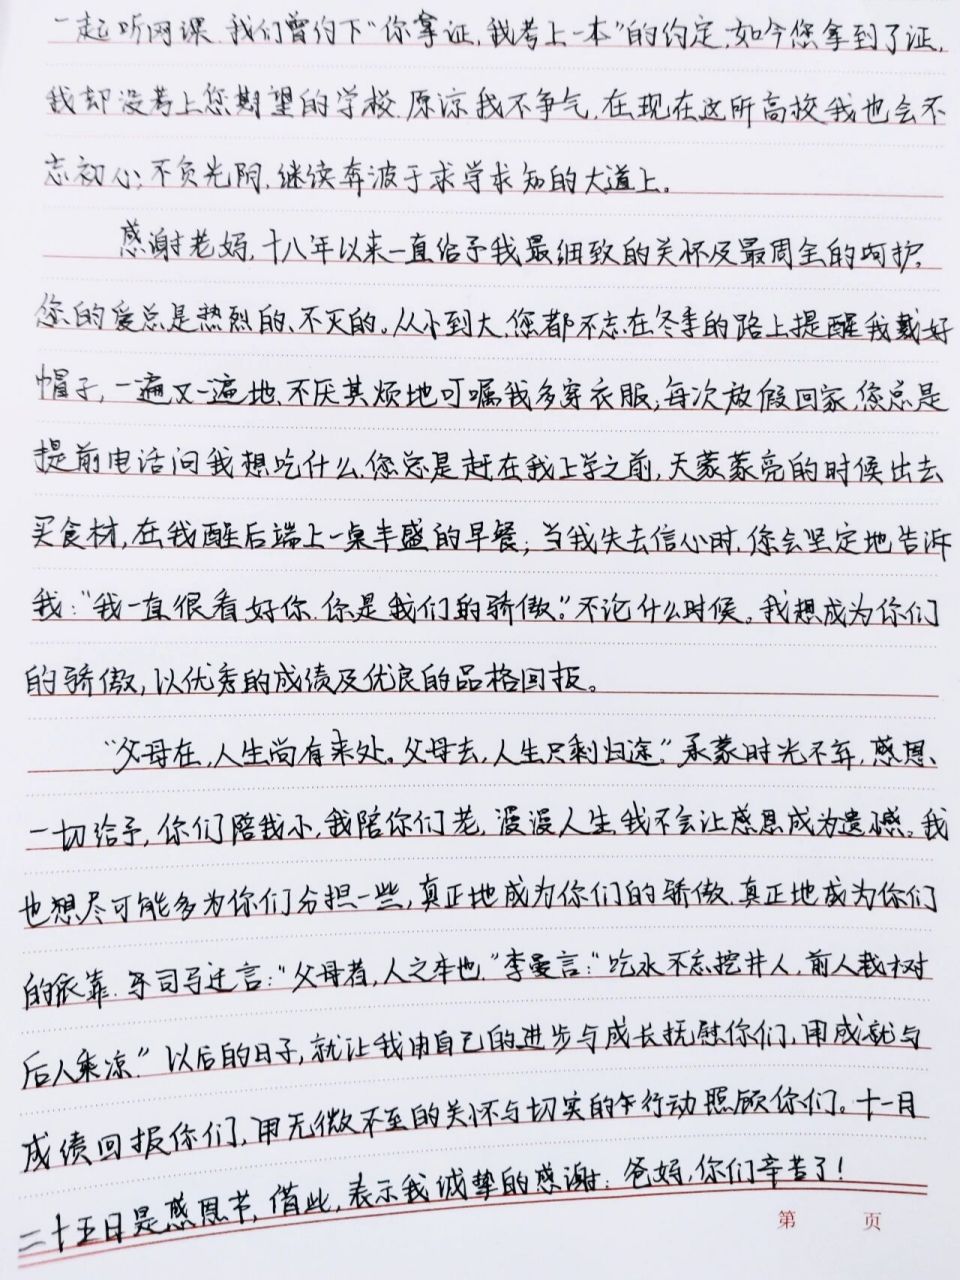 一起听网课,我们曾约下“你拿证,我考上一本”的约定,如今您拿到了证,
我却没考上您期望的学校.原谅我不争气,在现在这所高校,我也会不
忘初心,不负光阴,继续奔波于求学求知的大道上。
感谢老妈,十八年以来一直给予我最细致的关怀及最周全的呵护,
您的爱总是热烈的、不灭的。从小到大,您都不忘在冬季的路上提醒我戴好
帽子,一遍又一遍地、不厌其烦地叮嘱我多穿衣服;每次放假回家,您总是
提前电话问我想吃什么,您总是赶在我上学之前,天蒙蒙亮的时候出去
买食材,在我醒后端上一桌丰盛的早餐;当我失去信心时,您会坚定地告诉
我:“我一直很看好你,你是我们的骄傲.”不论什么时候。我想成为你们
的骄傲,以优秀的成绩及优良的品格回报。
“父母在,人生尚有来处。父母去,人生只剩归途.”承蒙时光不弃,感恩
一切给予,你们陪我小,我陪你们老,漫漫人生,我不会让感恩成为遗憾。我
也想尽可能多为你们分担一些,真正地成为你们的骄傲,真正地成为你们
的依靠.司马迁言:“父母者,人之本也.”李曼言:“吃水不忘挖井人,前人栽树
后人乘凉.”以后的日子,就让我用自己的进步与成长抚慰你们,用成就与
成绩回报你们,用无微不至的关怀与切实的行动照顾你们。十一月
二十五日是感恩节,借此,表示我诚挚的感谢:爸妈,你们辛苦了!
第 页